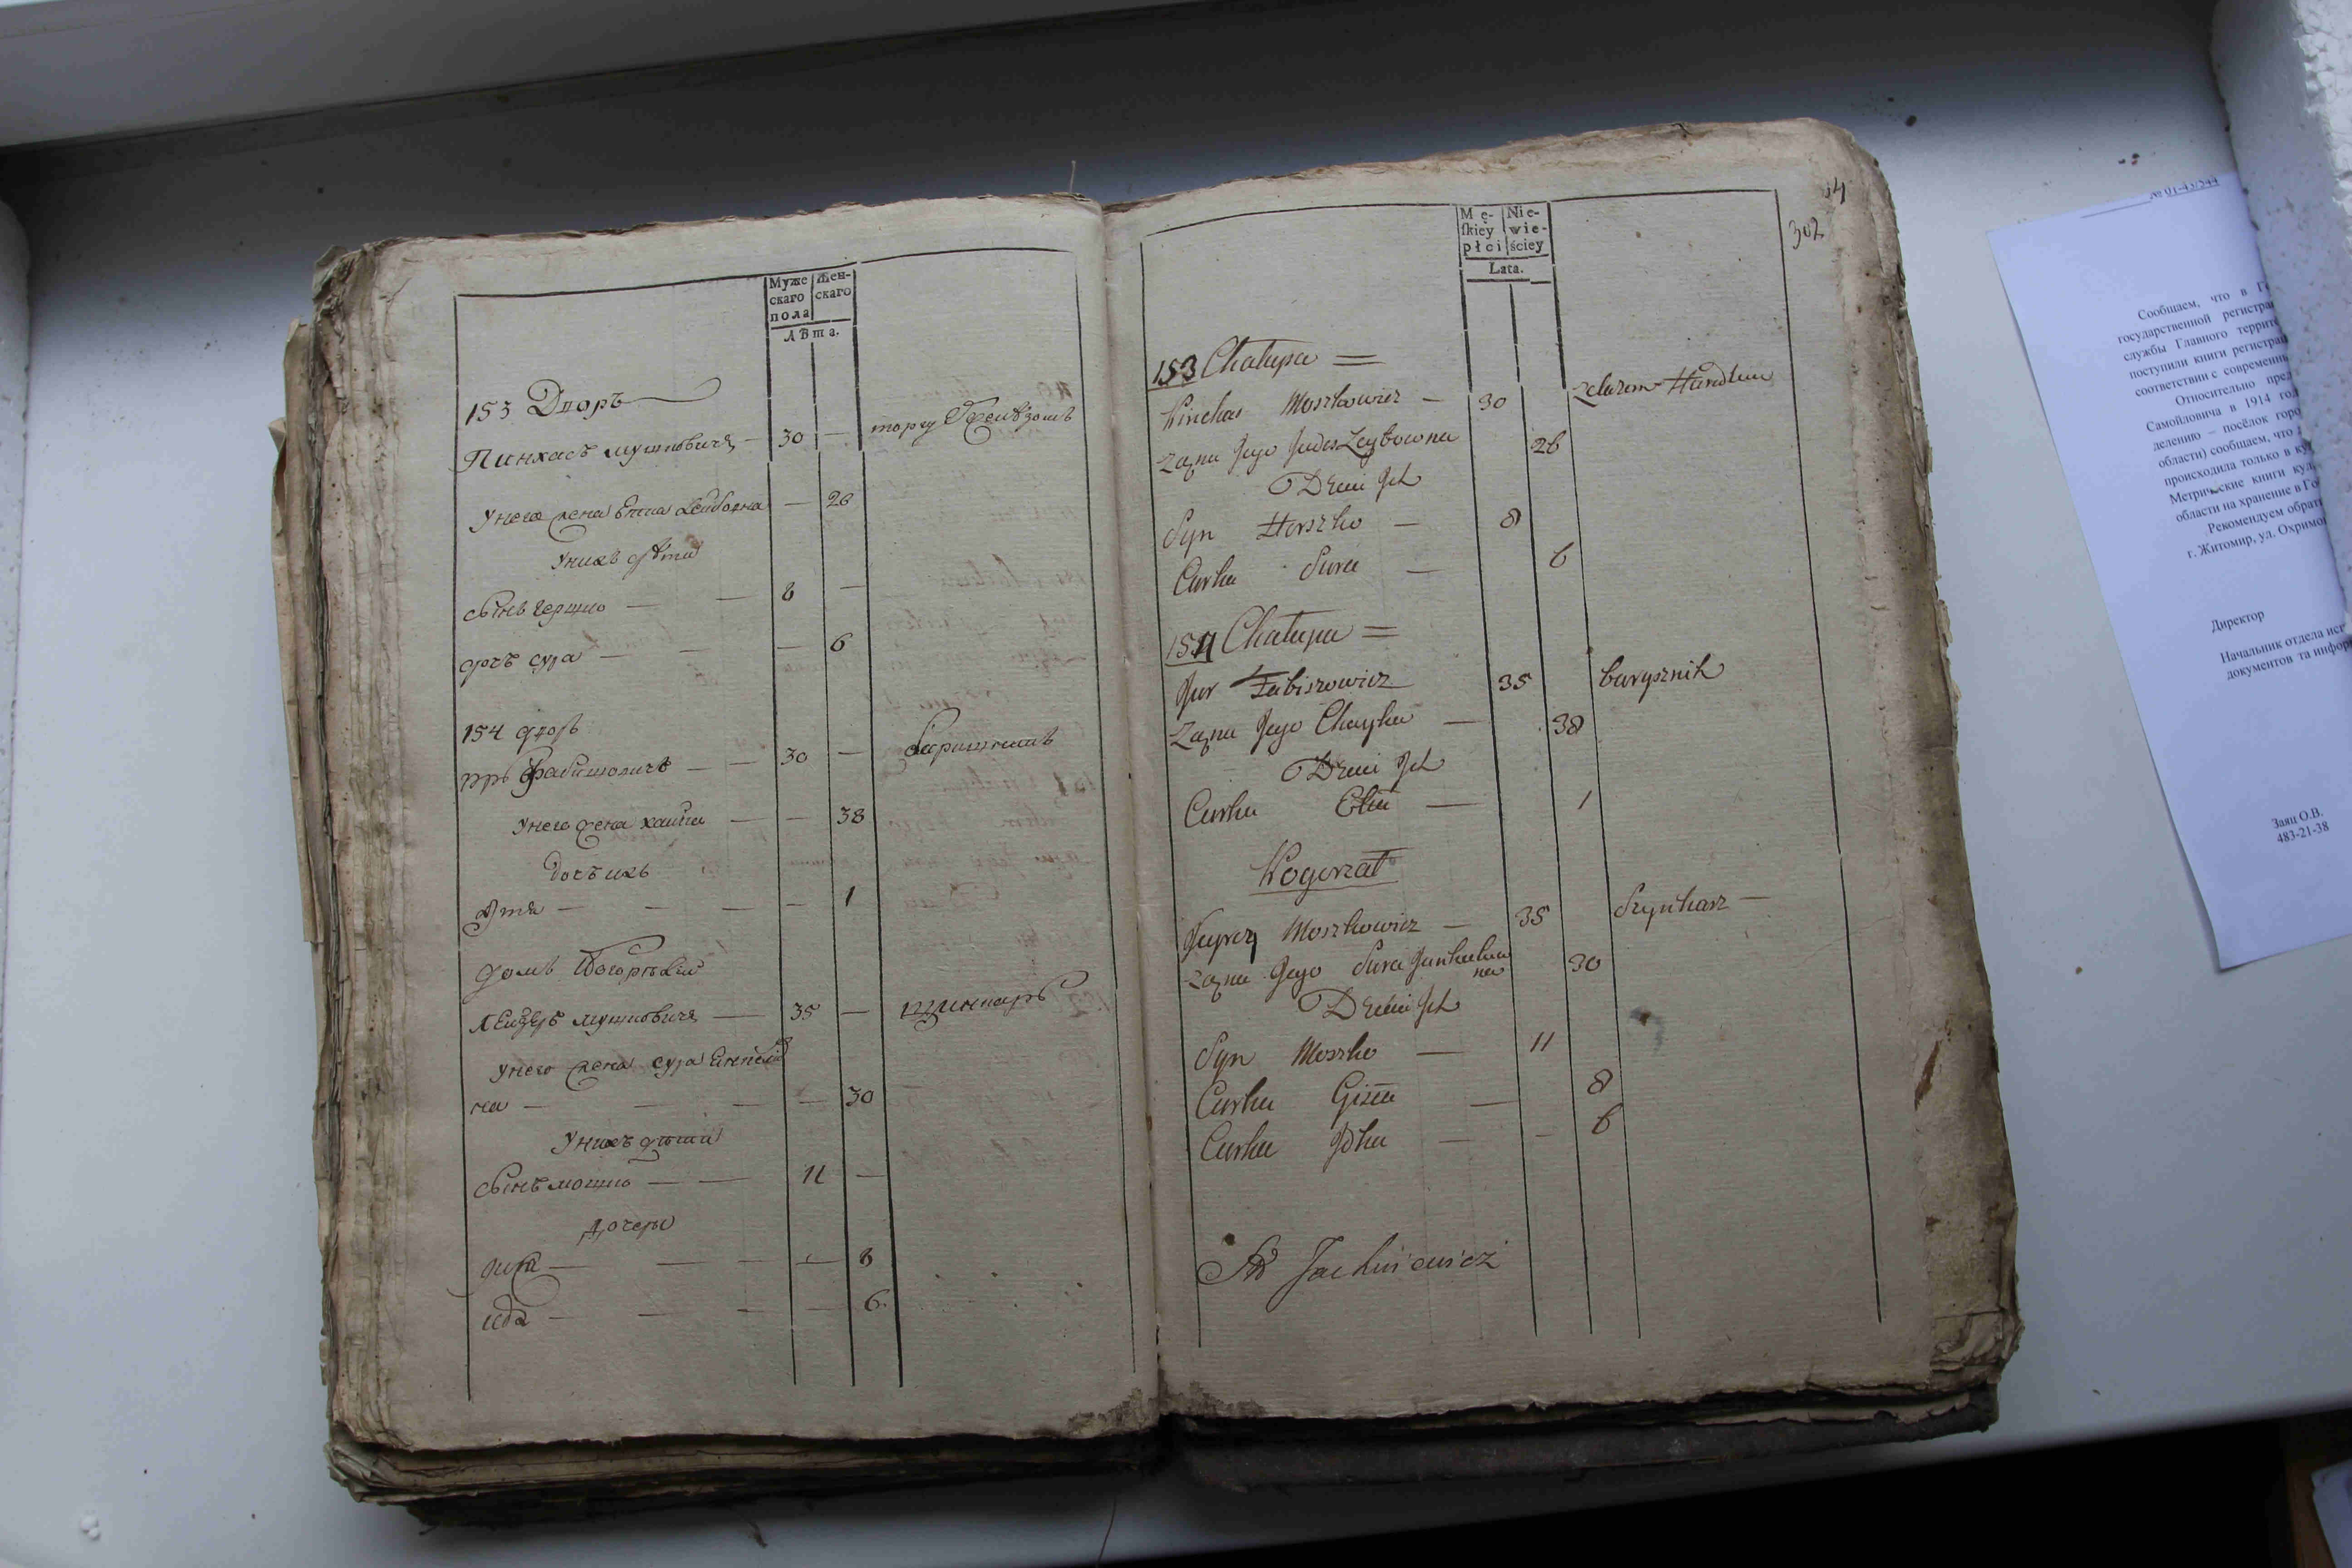 Муже
скаго
пола
Жен-
скаго
лѣта.
153 Дворъ
Пинхасъ мушковичъ — 30 — торгу
У него жена Лейбовна — 26
У нихъ дѣти
сынъ Гершко — — 8 —
дочь сура — — — 6
154 дворъ
Фабишовичъ — — 30 —
У него жена хайка — — 38
дочь ихъ
— — — — 1
домъ
Лейзеръ мушковичъ — 35 — шинкарь
У него жена сура
на — — — — 30
У нихъ дѣти
сынъ мошко — — 11 —
дочери
— — — — 8
ида — — — — 6
Mę-
skiey
płci
Nie-
wie-
ściey
Lata.
54
302
153 Chałupa =
Pinchas Moszkowicz — 30 żelazem Handluie
Żona Jego Judes Leybowna 26
Dzieci Ich
Syn Herszko — 8
Curka Sura — 6
154 Chałupa =
Fabiszowicz 35 barysznik
Żona Jego Chayka — 38
Dzieci Ich
Curka Etia — 1
Pogorzał
Moszkowicz — 35 Szynkarz —
Żona Jego Sura Jankielow
na 30
Dzieci Ich
Syn Moszko — 11
Curka — 8
Curka Idka — — 6
Jachniewicz
№ 01-43/544
Сообщаем, что в Г
государственной регистра
службы Главного террит
поступили книги регистра
соответствии с современн
Относительно пред
Самойловича в 1914 го
делению – посёлок горо
области) сообщаем, что
происходила только в ку
Метрические книги кул
области на хранение в Го
Рекомендуем обрат
г. Житомир, ул. Охримо
Директор
Начальник отдела исп
документов та инфор
Заяц О.В.
483-21-38